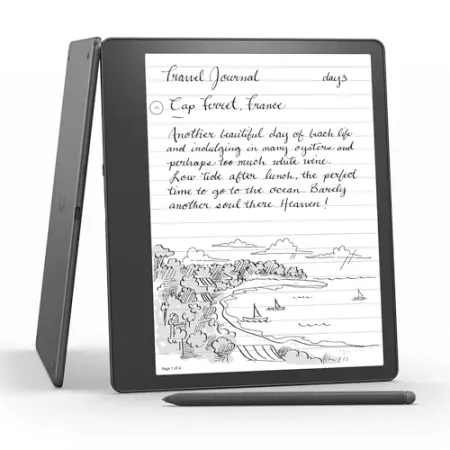 Travel Journal day 3
Cap Ferret, France
Another beautiful day of beach life
and indulging in many oysters and
perhaps too much white wine.
Low tide after lunch, the perfect
time to go to the ocean. Barely
another soul there Heaven!
Page 1 of 4